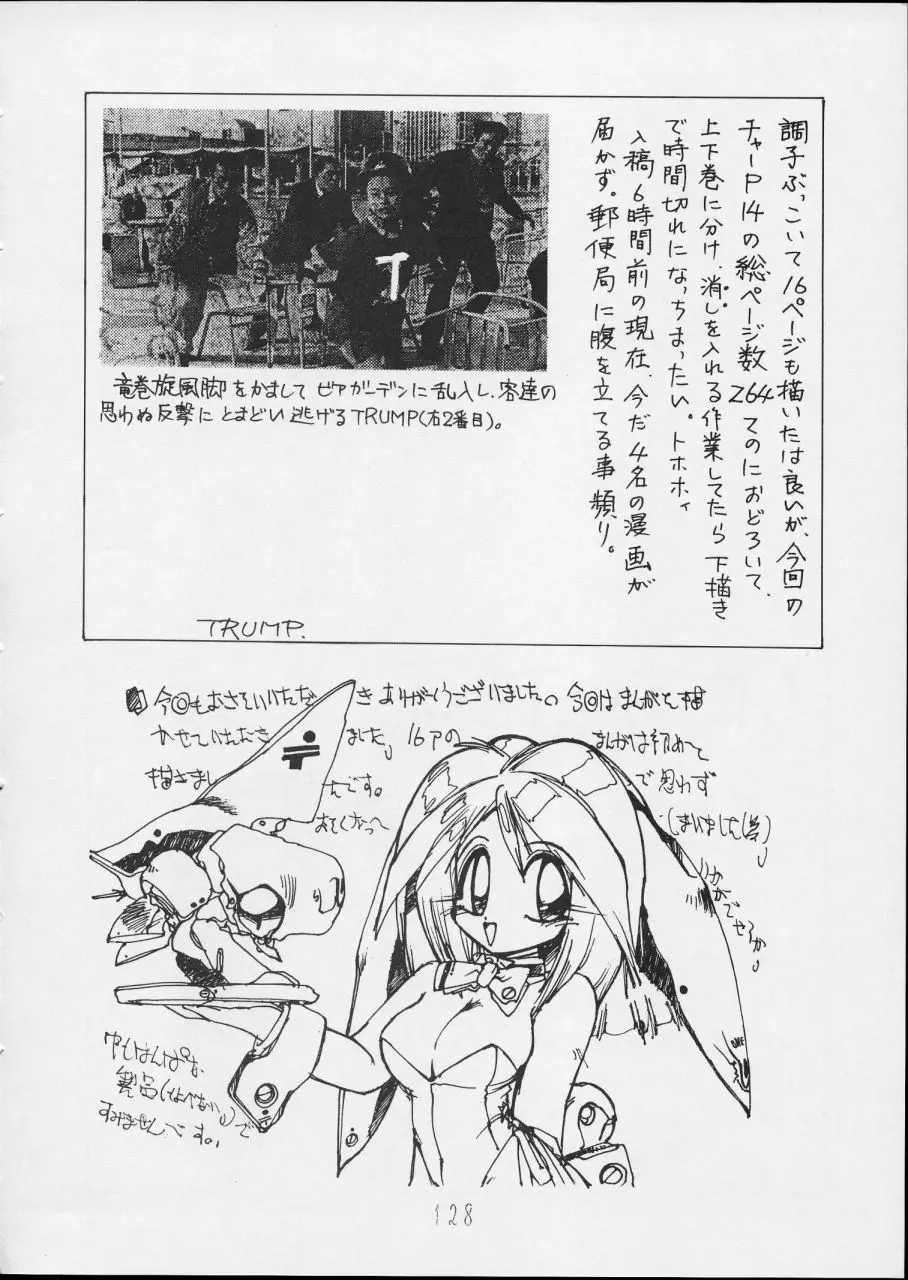 調子ぶっこいて16ページも描いたは良いが、今回の
チャーP14の総ページ数264てのにおどろいて、
上下巻に分け、消しを入れる作業してたら下描き
で時間切れになっちまったい。トホホィ
入稿6時間前の現在、今だ4名の漫画が
届かず。郵便局に腹を立てる事頻り。
T
竜巻旋風脚をかましてビアガーデンに乱入し、客達の
思わぬ反撃にとまどい逃げるTRUMP(右2番目)。
TRUMP.
今回もおさそいいただきありがとうございました。今回はまんがを描
かせていただきました。16Pのまんがは初めて
で思わず
すみませんです。
128